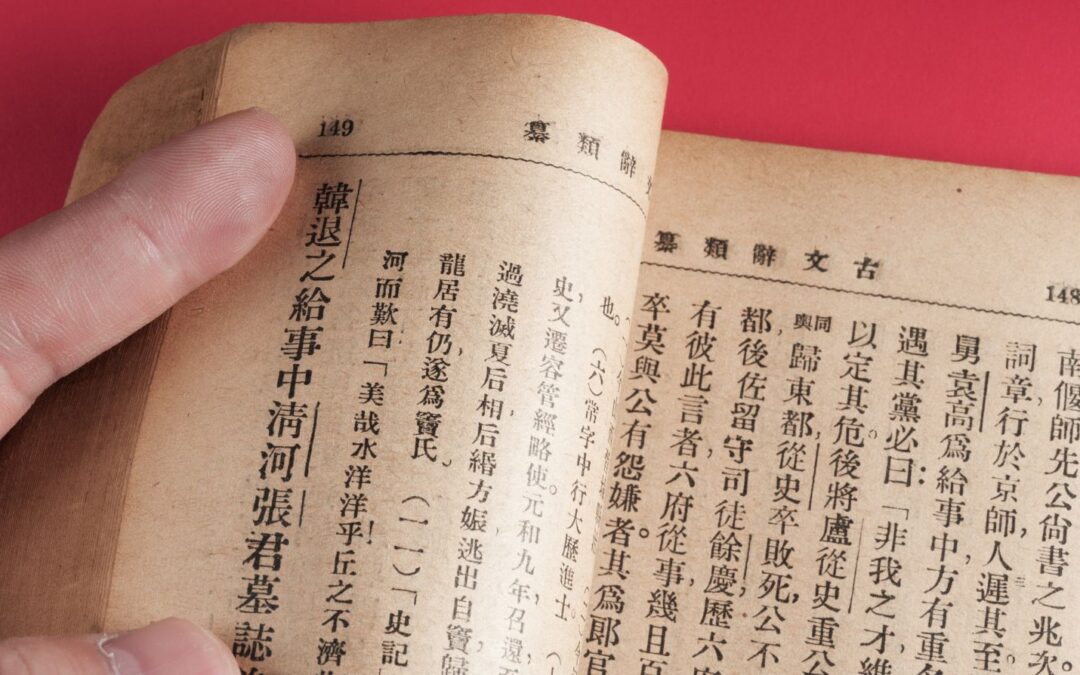 148
古文辭類纂
南偃師先公尚書之兆次。
詞章,行於京師,人遲其至。
舅袁高爲給事中,方有重名
遇其黨必曰:「非我之才維
以定其危。後將盧從史重公
同與歸東都,從史卒敗死,公不
都,後佐留守司徒餘慶,歷六
有彼此言者,六府從事,幾且百
卒莫與公有怨嫌者。其爲郎官
149
辭類纂
也。(六)常字中行大歷進士
史,又遷容管經略使。元和九年,召還
過澆滅夏后相,后緡方娠,逃出自竇,歸
龍居有仍,遂爲竇氏。(一一)「史記
河而歎曰:「美哉水洋洋乎!丘之不濟
韓退之給事中清河張君墓誌